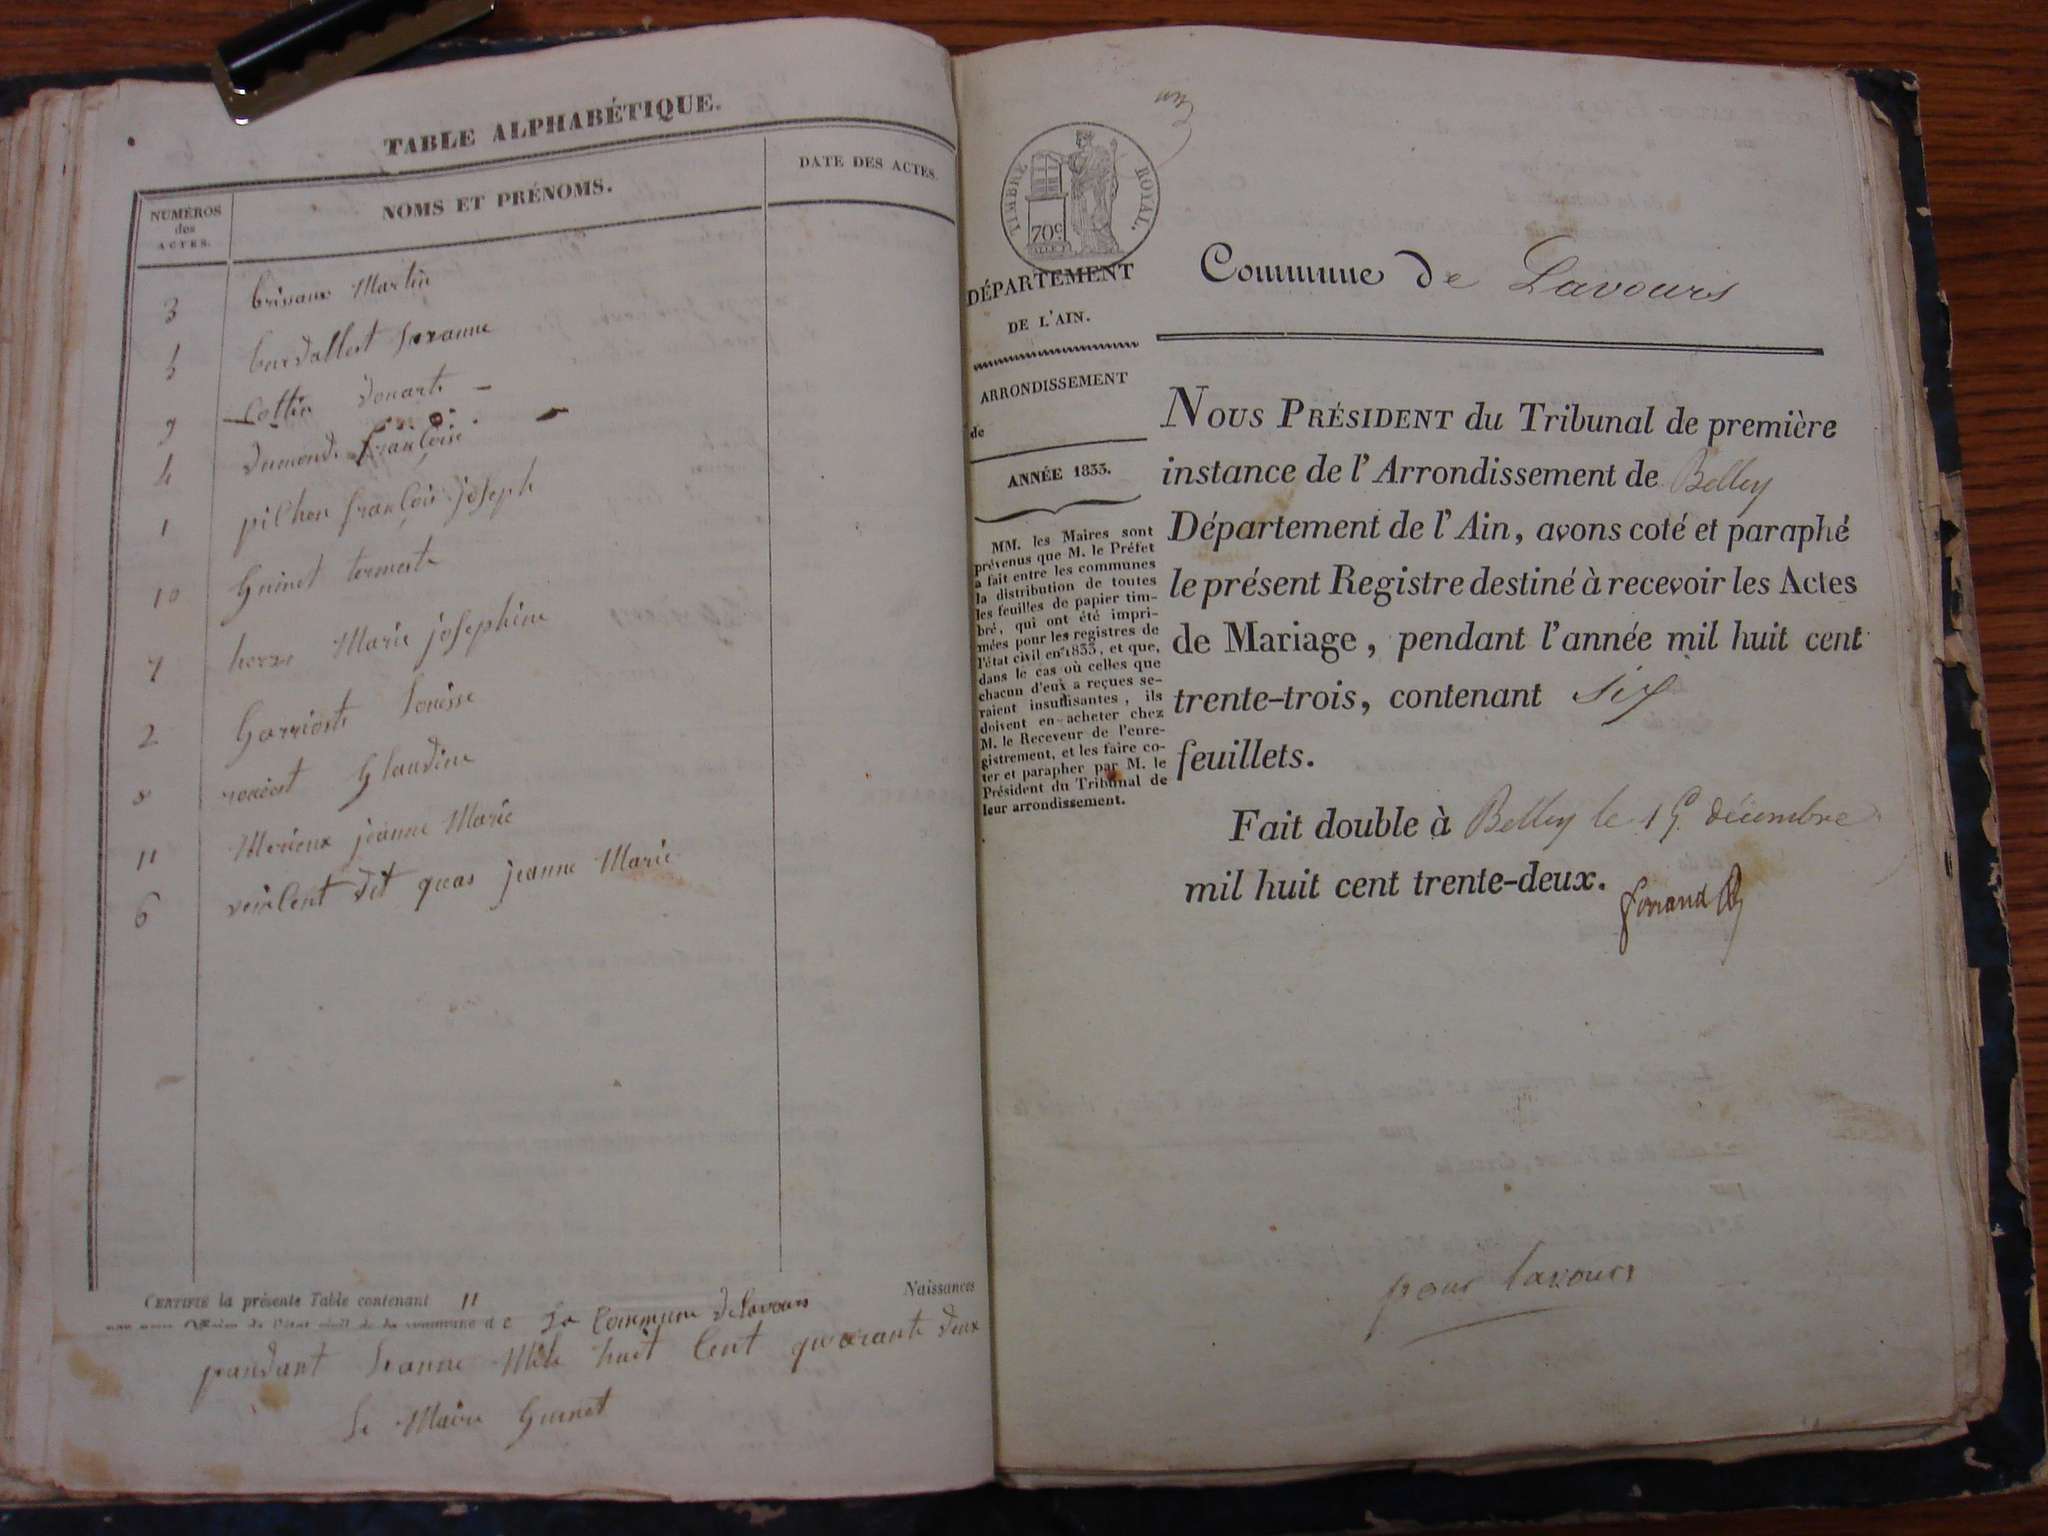 TABLE ALPHABÉTIQUE.
NUMÉROS des ACTES.
NOMS ET PRÉNOMS.
DATE DES ACTES.
3 Martin
5
9 Cottin
4 françoise
1 françois joseph
10 Guinet
7 Marie josephine
2 Louisse
8 Glaudine
11 Merieux jeanne Marie
6 dit jeanne Marie
CERTIFIÉ la présente Table contenant 11 Naissances
par nous Officier de l'état civil de la commune de La Commune de Lavours
pandant Leanne Mile huit Cent quarante deux
Le Maire Guinet
TIMBRE ROYAL.
70c
DÉPARTEMENT
DE L'AIN.
ARRONDISSEMENT
de
ANNÉE 1833.
MM. les Maires sont
prévenus que M. le Préfet
a fait entre les communes
la distribution de toutes
les feuilles de papier tim-
bré, qui ont été impri-
mées pour les registres de
l'état civil en 1833, et que,
dans le cas où celles que
chacun d'eux a reçues se-
raient insuffisantes, ils
doivent en acheter chez
M. le Receveur de l'enre-
gistrement, et les faire co-
ter et parapher par M. le
Président du Tribunal de
leur arrondissement.
Commune de Lavours
NOUS PRÉSIDENT du Tribunal de première
instance de l'Arrondissement de Belley
Département de l'Ain, avons coté et paraphé
le présent Registre destiné à recevoir les Actes
de Mariage, pendant l'année mil huit cent
trente-trois, contenant six
feuillets.
Fait double à Belley le 15 décembre
mil huit cent trente-deux.
pour lavours